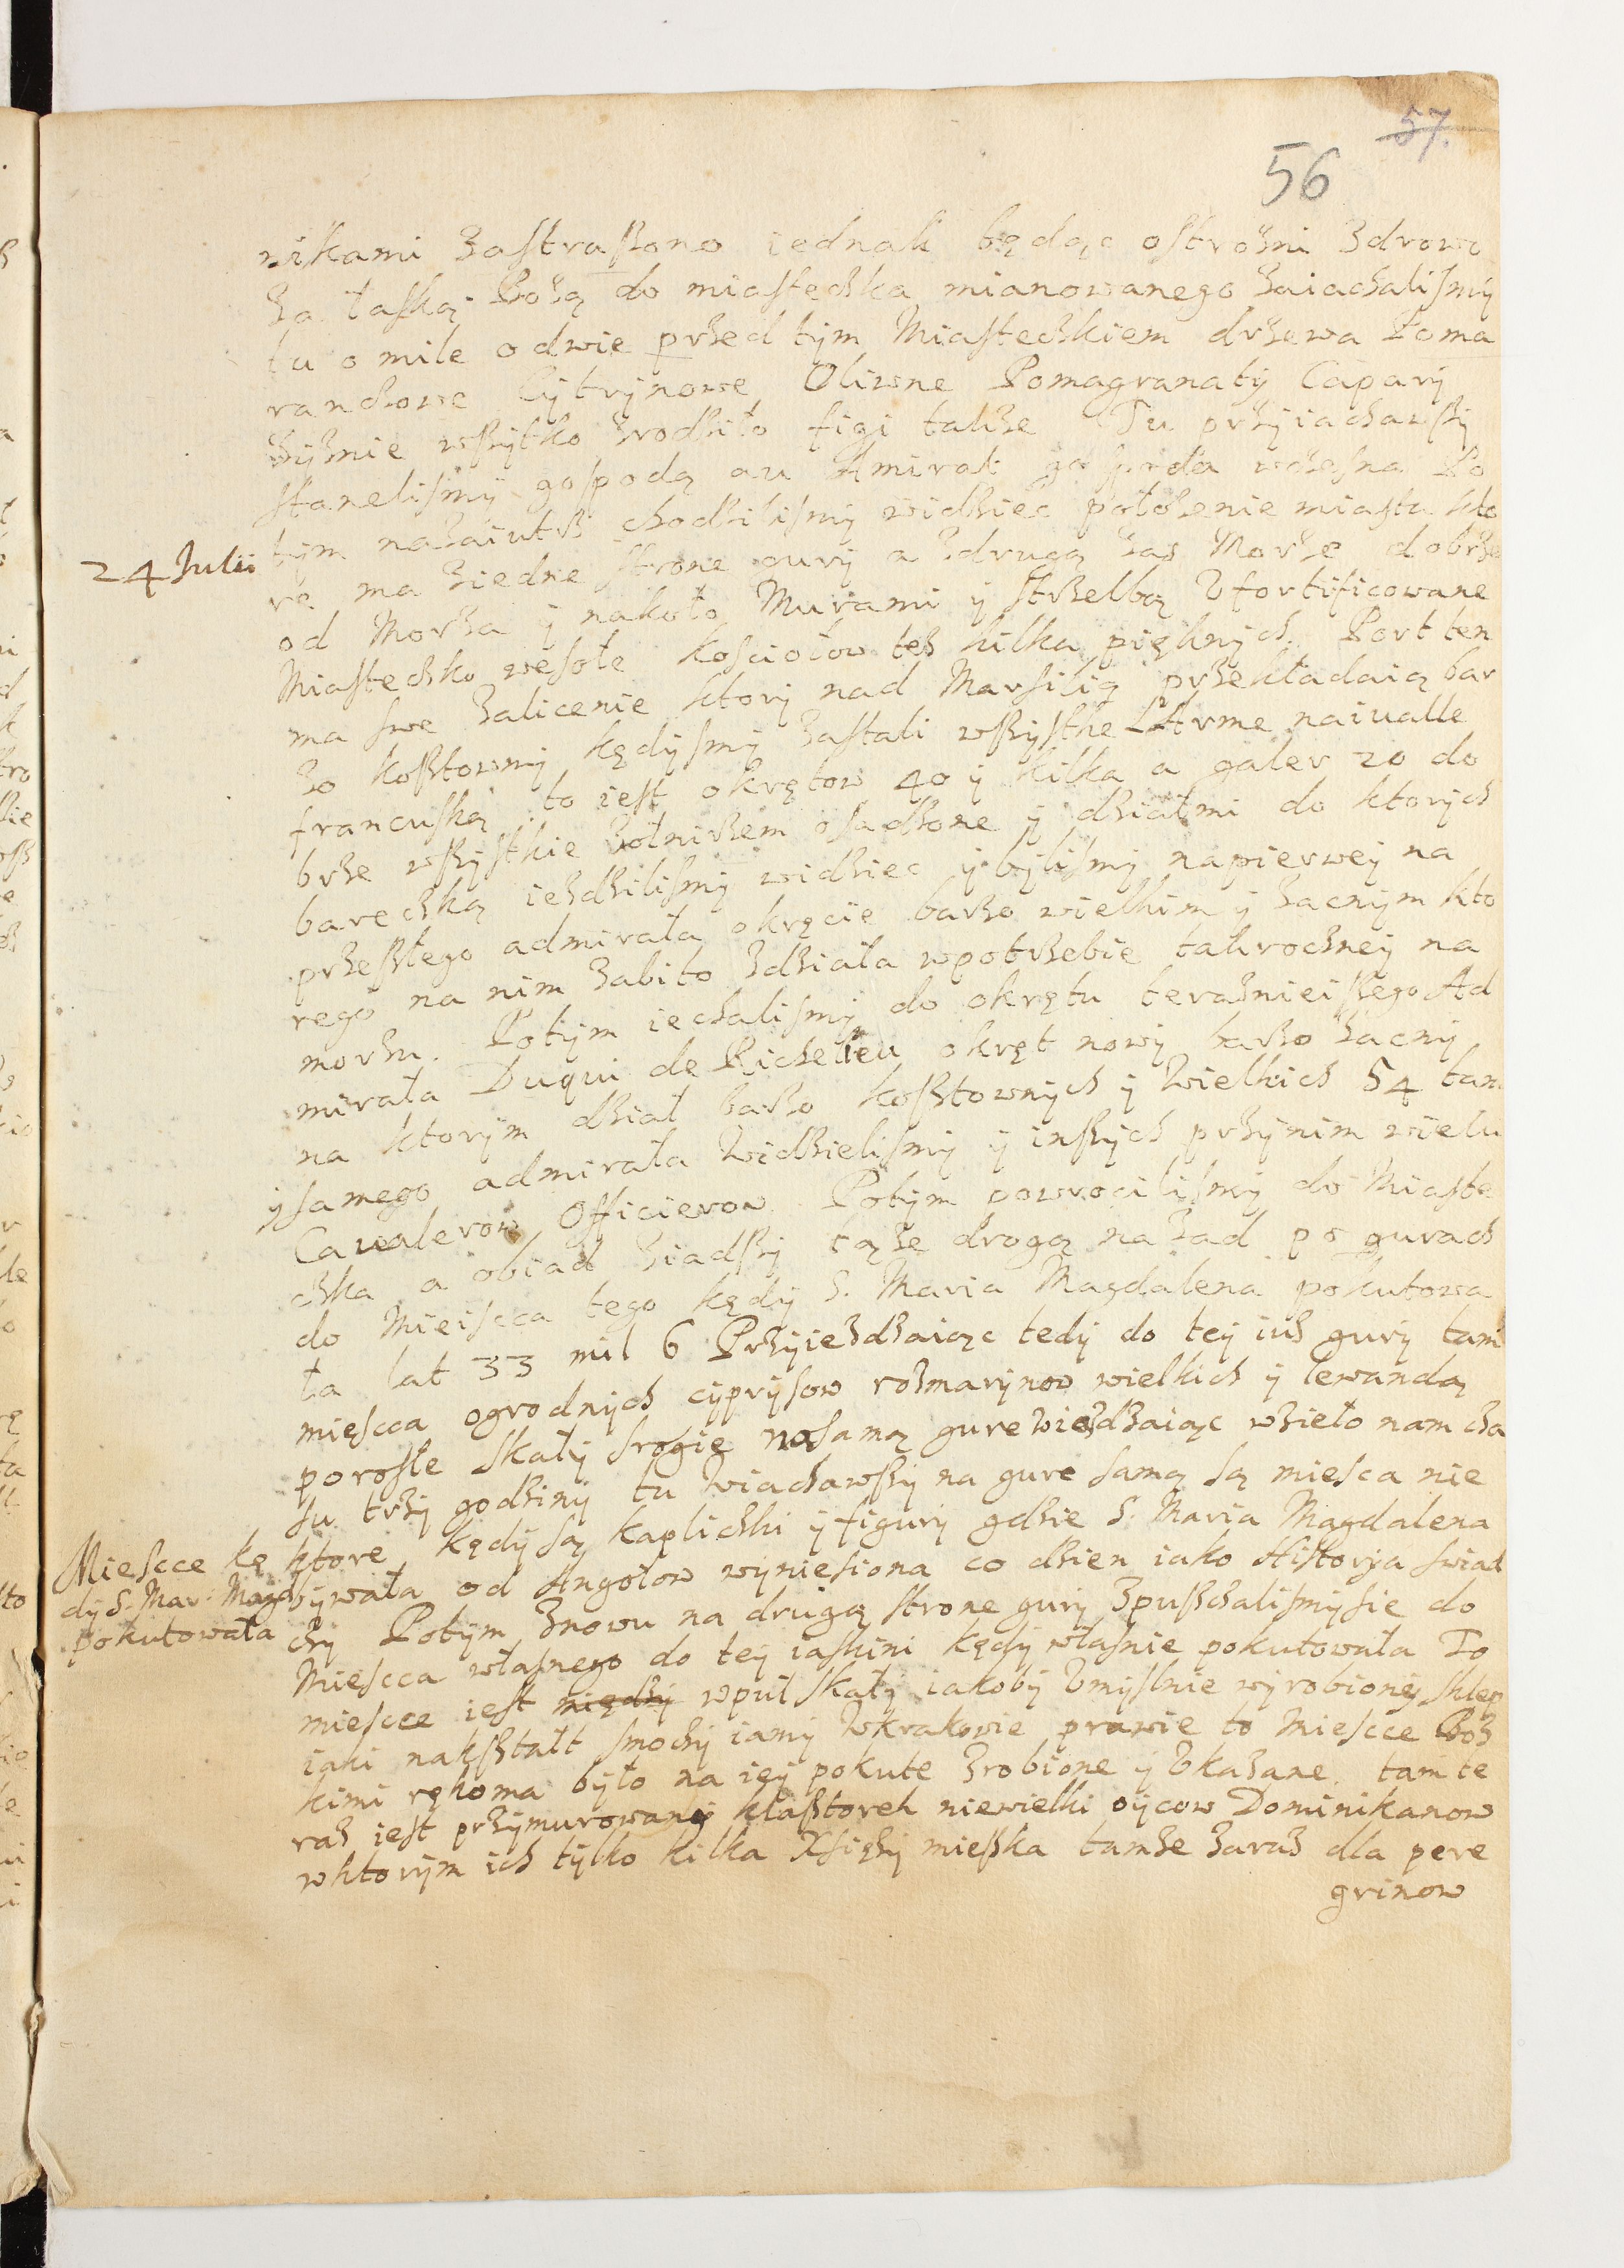 57.
56
nikami zastraszono iednak będąc ostrożni zdrowo
za łaską Bożą do miasteczka mianowanego zaiachalismy
tu o mile o dwie przed tym Miasteczkiem drzewa Poma
ranczowe Cytrynowe Oliwne Pomagranaty Capary
żyżnie wszytko zrodziło figi także Tu przyiachawszy
stanelismy gospodą au Amiral gospoda wczesna Po
24 Julii
tym nazaiutrz chodzilismy widziec położenie miasta kto
re ma ziedne strone gury a zdrugą zas Morze dobrze
od Morza y nakoło Murami y strzelbą Vfortificowane
Miasteczko wesołe kosciołow też kilka pięknych. Port ten
ma swe zalicenie ktory nad Marsilią przekładaią bar
zo kosztowny kędysmy zastali wszystke L'Arme naiualle
francuską to iest okrętow 40 y kilka a galer 20 do
brze wszystkie żołnirzem osadzone y działmi do ktorych
bareczką iezdzilismy widziec y bylismy napierwey na
przeszłego admirała okręcie barzo wielkim y zacnym kto
rego na nim zabito zdziała wpotrzebie takroczney na
morzu. Potym iechalismy do okrętu teraznieiszego Ad
mirała Duqui de Richelieu okręt nowy barzo zacny
na ktorym dział barzo kosztownych y wielkich 54 tam
ysamego admirała Widzielismy y inszych przynim wielu
Cavalerow Officierow Potym powrocilismy do Miaste
czka a obiad ziadszy tąże drogą nazad po gurach
do Mieiscca tego kędy S. Maria Magdalena pokutowa
ła lat 33 mil 6 Przyiezdzaiąc tedy do tey iuż gury tam
miescca ogrodnych cyprysow rozmarynow wielkich y lewandą
porosłe skały srogie na samą gure wiezdzaiąc wzieło nam cza
su trzy godziny tu wiachawszy na gure samą są miesca nie
ktore kędy są kapliczki y figury gdzie S. Maria Magdalena
Miescce kę
dy S. Mar. Magd
pokutowała
bywała od Angołow wyniesiona co dzien iako Historya swiad
czy Potym znowu na drugą strone gury zpuszczalismysie do
Miescca własnego do tey iaskini kędy własnie pokutowała To
miescce iest między wpuł skały iakoby Vmyslnie wyrobioney sklep
iaki nakształt smoczy iamy Wkrakowie prawie to Miescce Boz
kimi rękoma było na iey pokute zrobione y Vkazane. tam te
raz iest przymurowany klasztorek niewielki oycow Dominikanow
wktorym ich tylko kilka Xsięzy mieszka tamże zaraz dla pere
grinow